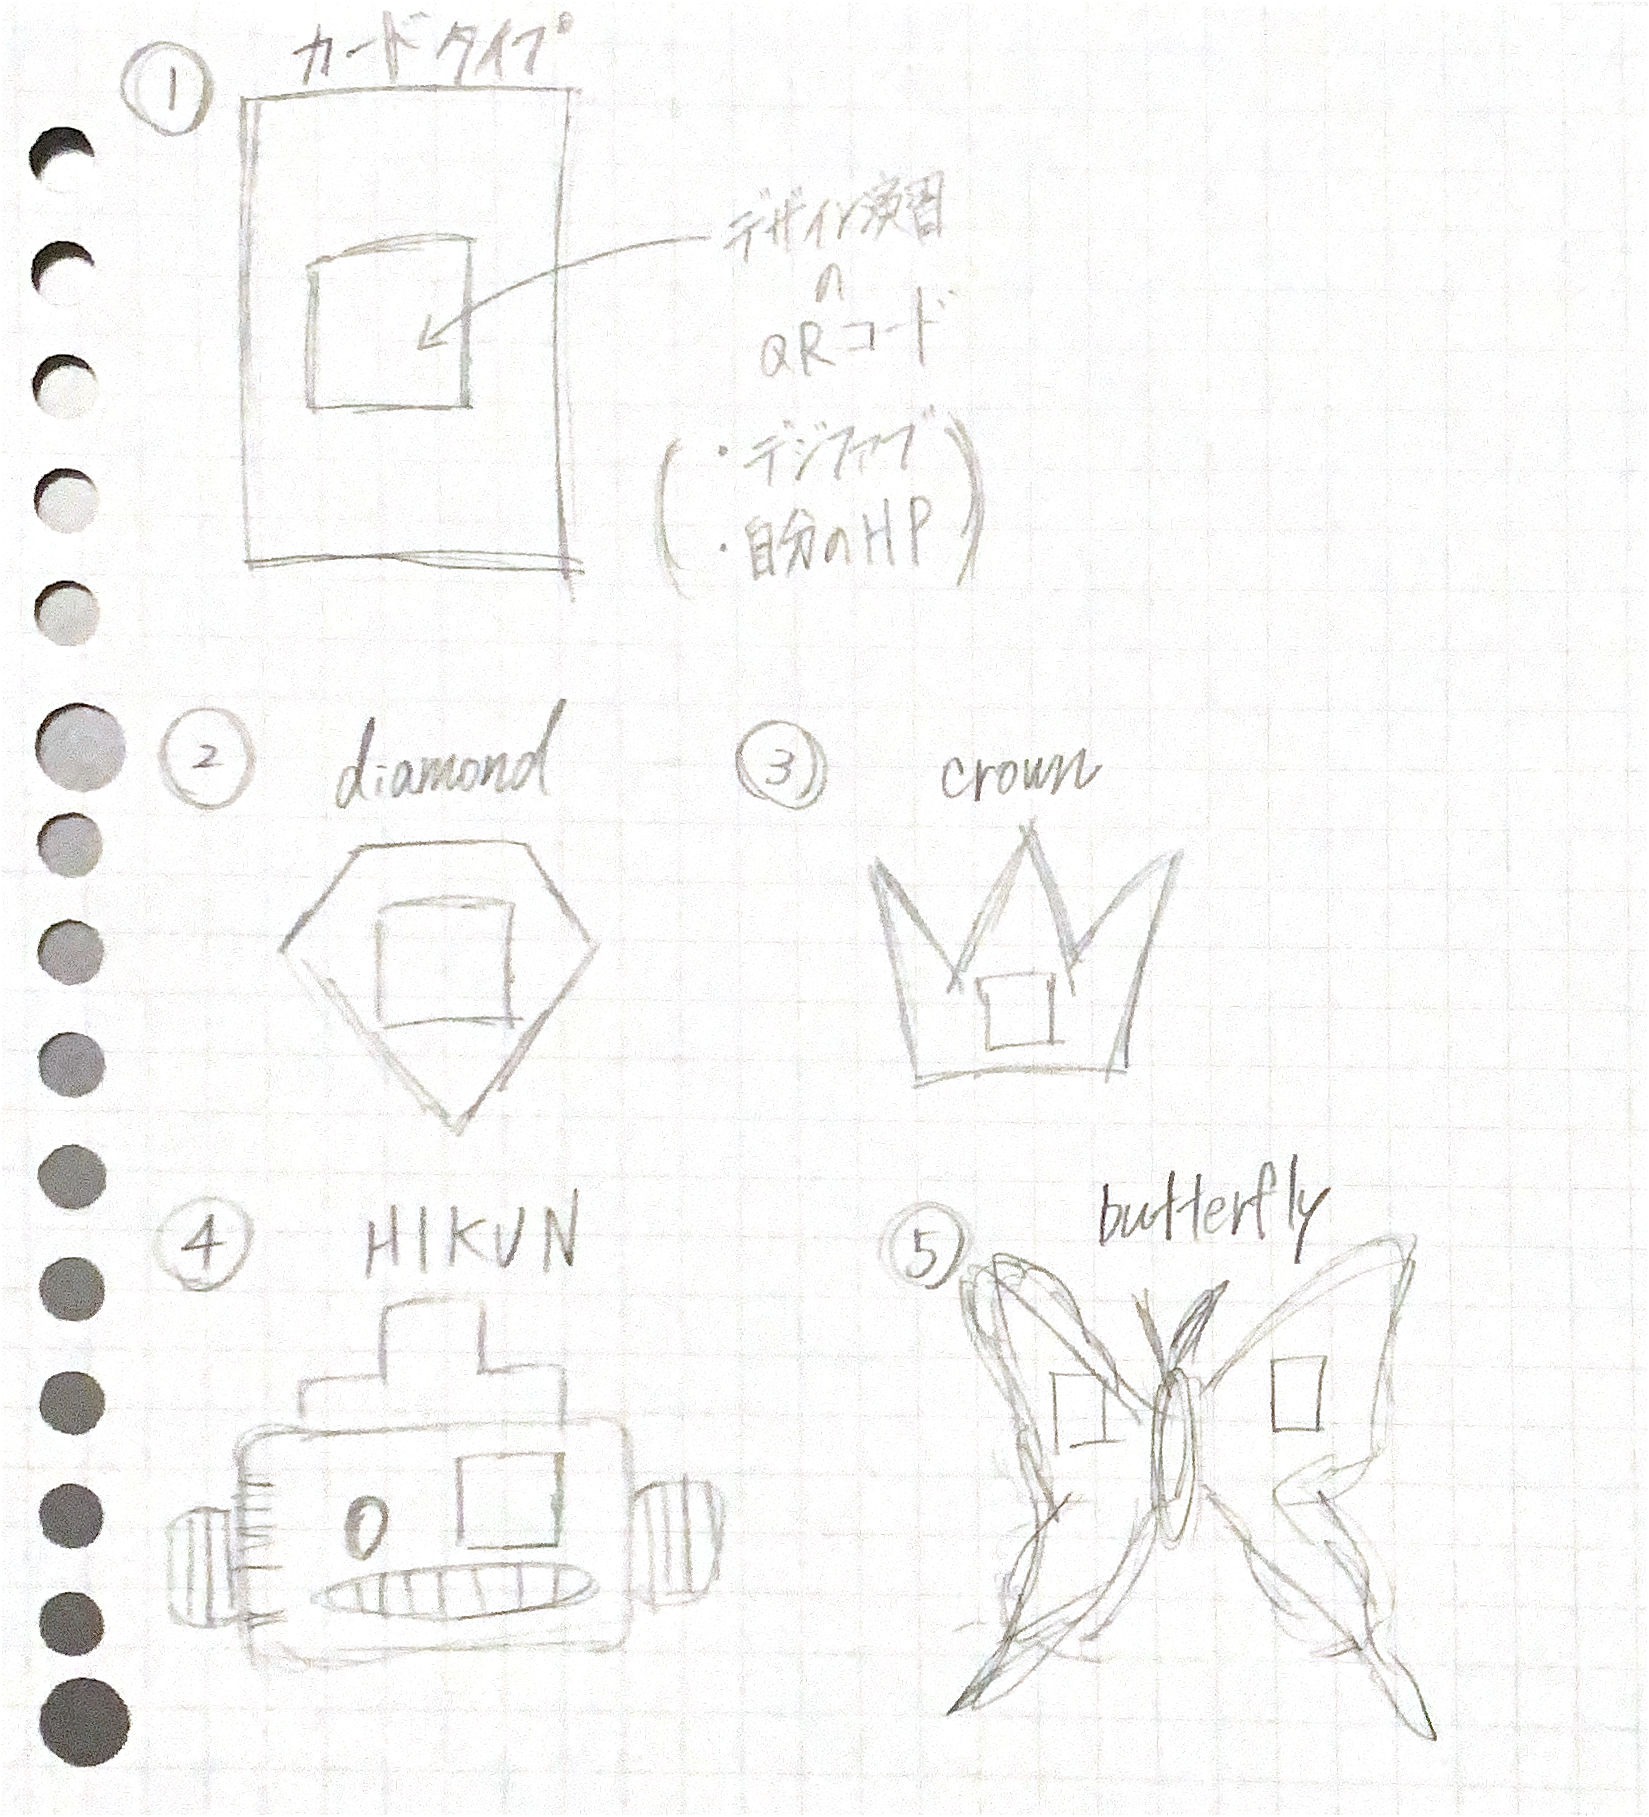 ① カードタイプ
デザイン演習
の
QRコード
(・デジファブ
・自分のHP)
② diamond
③ crown
④ HIKUN
⑤ butterfly